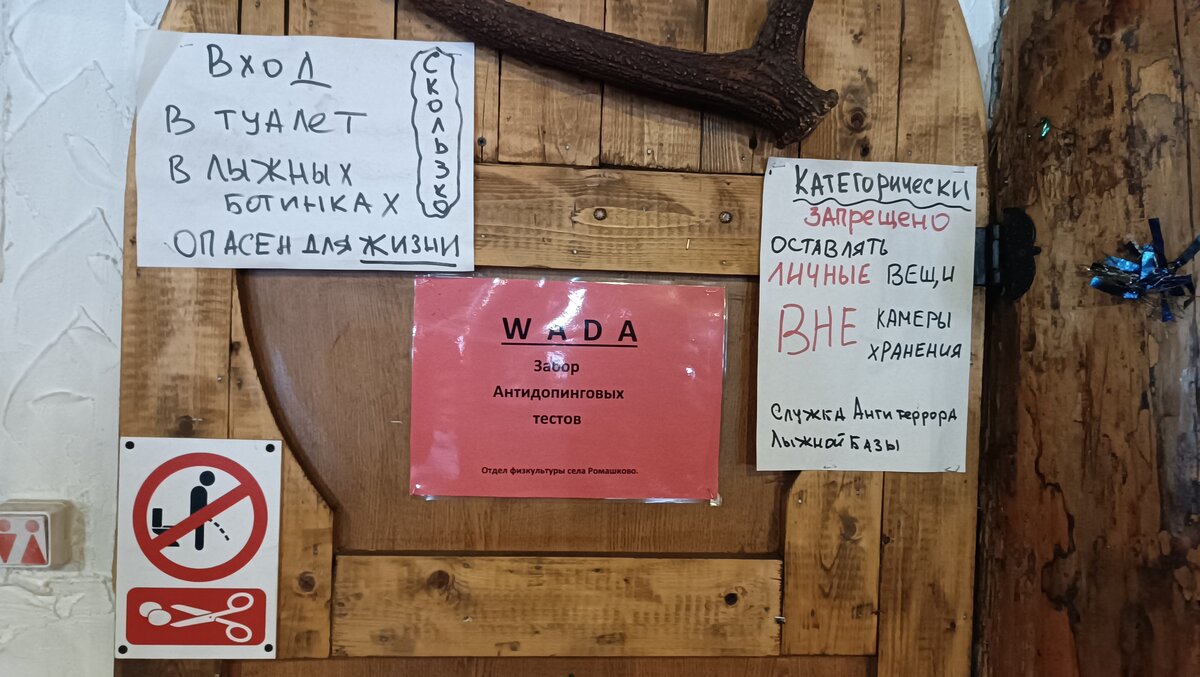 Вход
в туалет
в лыжных
ботинках
опасен для жизни
скользко
WADA
Забор
Антидопинговых
тестов
Отдел физкультуры села Ромашково.
Категорически
запрещено
оставлять
личные вещи
вне камеры
хранения
Служба Антитеррора
Лыжной Базы